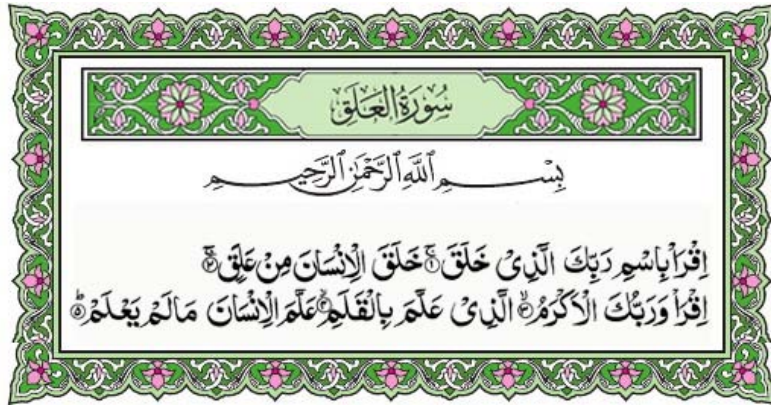 سُورَةُ الْعَلَقِ
بِسْمِ ٱللَّهِ ٱلرَّحْمَٰنِ ٱلرَّحِيمِ
اِقْرَاْ بِاسْمِ رَبِّكَ الَّذِىْ خَلَقَ ۚ‏﴿۱﴾ خَلَقَ الْاِنْسَانَ مِنْ عَلَقٍ ۚ‏﴿۲﴾
اِقْرَاْ وَرَبُّكَ الْاَكْرَمُ ۙ‏﴿۳﴾ الَّذِىْ عَلَّمَ بِالْقَلَمِ ۙ‏﴿۴﴾ عَلَّمَ الْاِنْسَانَ مَا لَمْ يَعْلَمْ ؕ‏﴿۵﴾